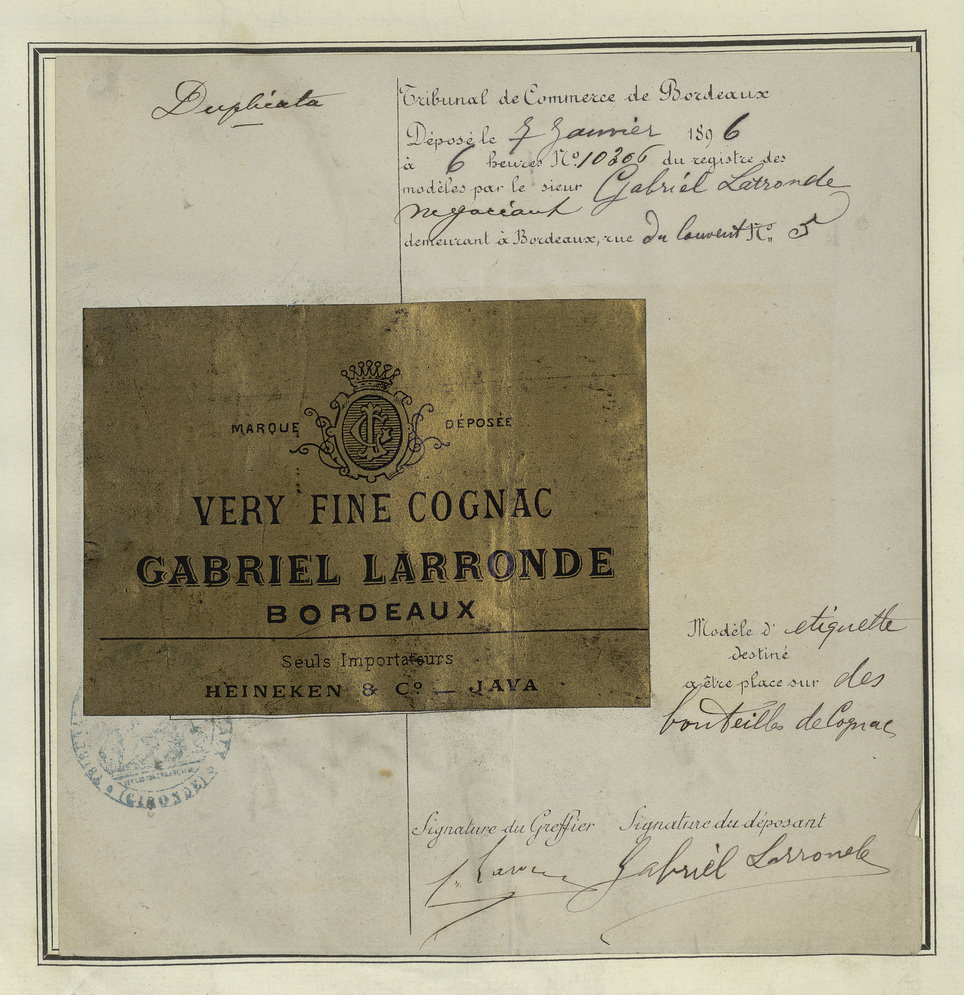 Duplicata
Tribunal de Commerce de Bordeaux
Déposé le 7 Janvier 1896
à 6 heures No. 10306 du registre des
modèles par le sieur Gabriél Larronde
négociant
demeurant à Bordeaux, rue du Couvent No. 5
MARQUE DÉPOSÉE
VERY FINE COGNAC
GABRIEL LARRONDE
BORDEAUX
Seuls Importateurs
HEINEKEN & Co — JAVA
Modèle d'etiquette
destiné
a être place sur des
bouteilles de Cognac
(GIRONDE)
Signature du Greffier Signature du déposant
Gabriél Larronde